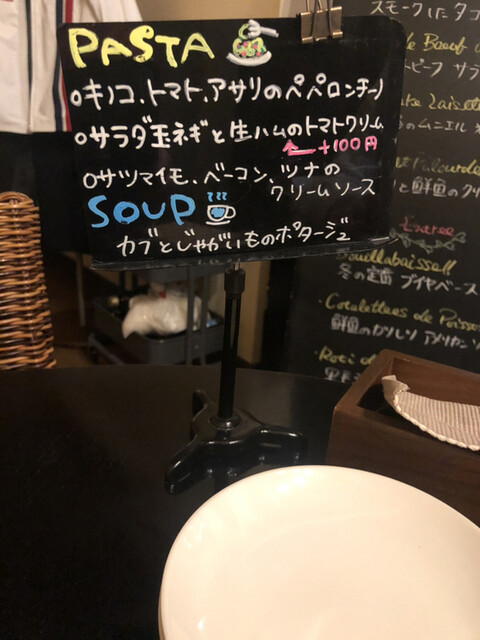 PASTA
○キノコ、トマト、アサリのペペロンチーノ
○サラダ玉ネギと生ハムのトマトクリーム
+100円
○サツマイモ、ベーコン、ツナの
クリームソース
SOUP
カブとじゃがいものポタージュ
スモークしたタコ
Boeuf
ビーフ サラ
のムニエル
と鮮魚のクリ
Entree
Bouillabaisse
冬の定番 ブイヤベース
・Cotelettes de Poisso
鮮魚の
アメリケーソ
・Roti d